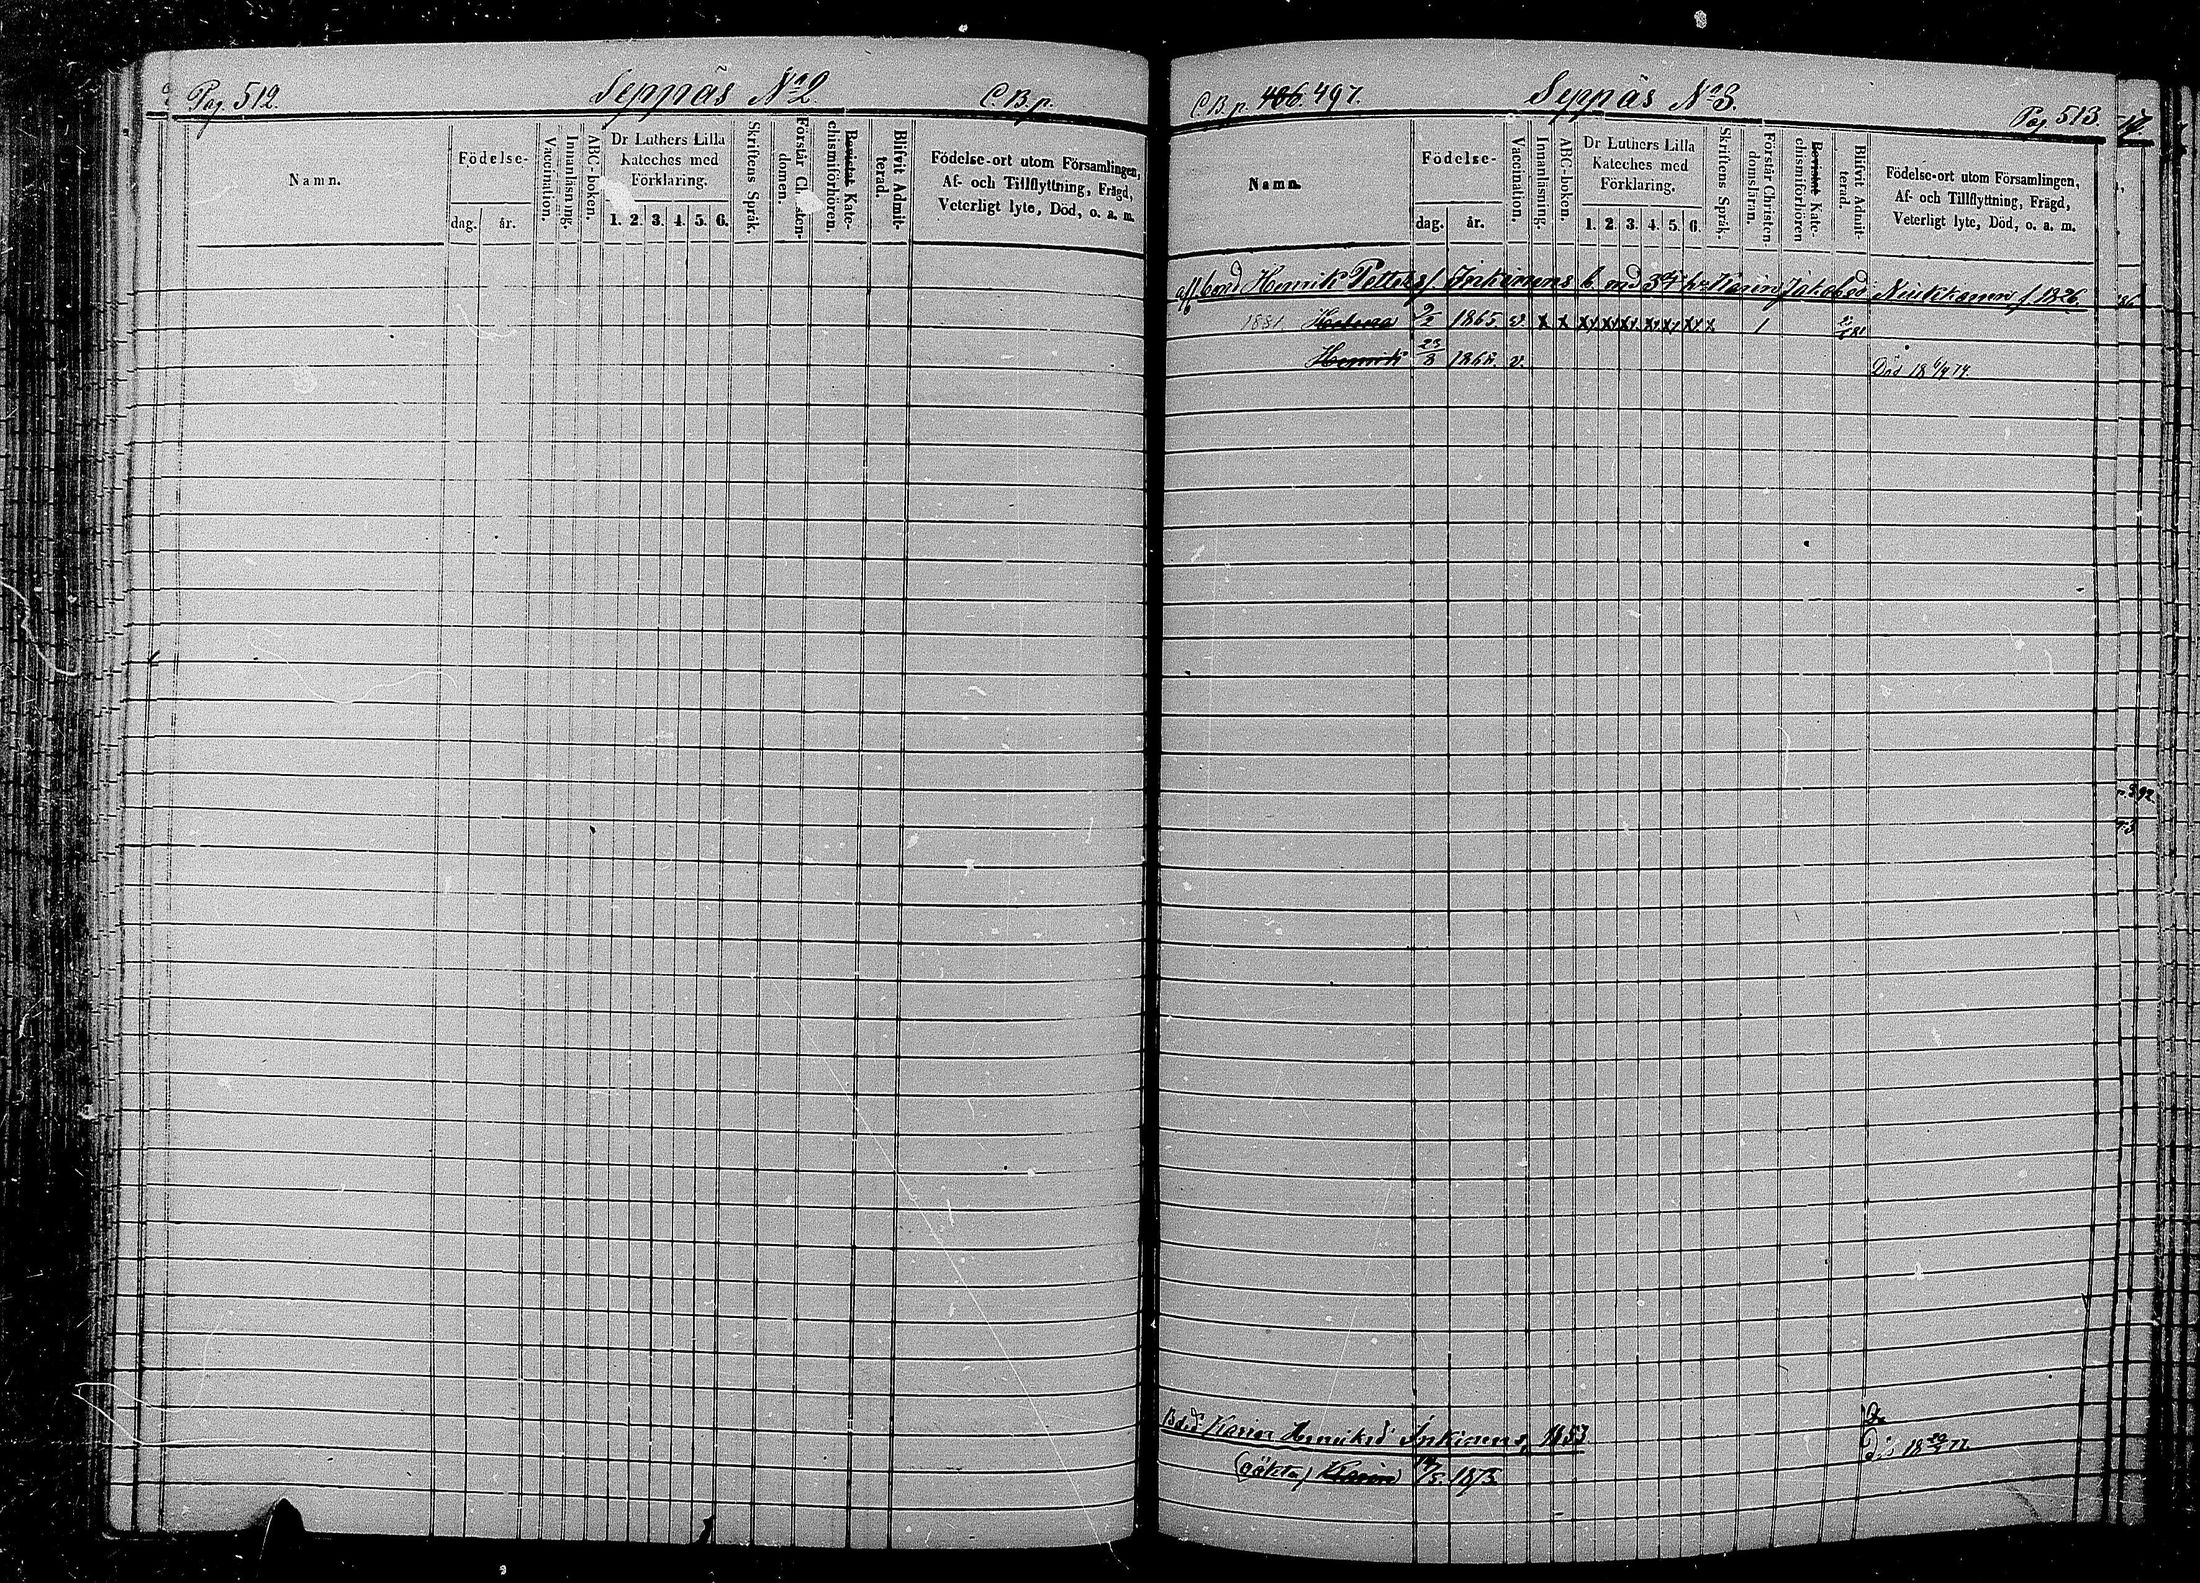 Pag. 512. Seppäs No 2. C. B. p.
Namn.
Födelse-
dag. år.
Vaccination.
Innanläsning.
ABC-boken.
Dr Luthers Lilla
Kateches med
Förklaring.
1. 2. 3. 4. 5. 6.
Skriftens Språk.
Förstår Ch
domen.
Bevistat Kate-
chismiförhören.
Blifvit Admit-
terad.
Födelse-ort utom Församlingen,
Af- och Tillflyttning, Frägd,
Veterligt lyte, Död, o. a. m.
C. B. p. 486. 497. Seppäs No 3. Pag 513.
Namn.
Födelse-
dag. år.
Vaccination.
Innanläsning.
ABC-boken.
Dr Luthers Lilla
Kateches med
Förklaring.
1. 2. 3. 4. 5. 6.
Skriftens Språk.
Förstår Christen-
domsläran.
Bevistat Kate-
chismiförhören
Blifvit Admit-
terad.
Födelse-ort utom Församlingen,
Af- och Tillflyttning, Frägd,
Veterligt lyte, Död, o. a. m.
Henrik Petters Inkinens b. med 3dj h: Karin Jakobsd Niukkanen f 1826.
1881 1865 v x x x x x x x x x 1
Henrik 23/8 1868. v. Död 18
Karin Henriksd Inkinens, 1853
(oäkta) Karin 1873. Dös 18